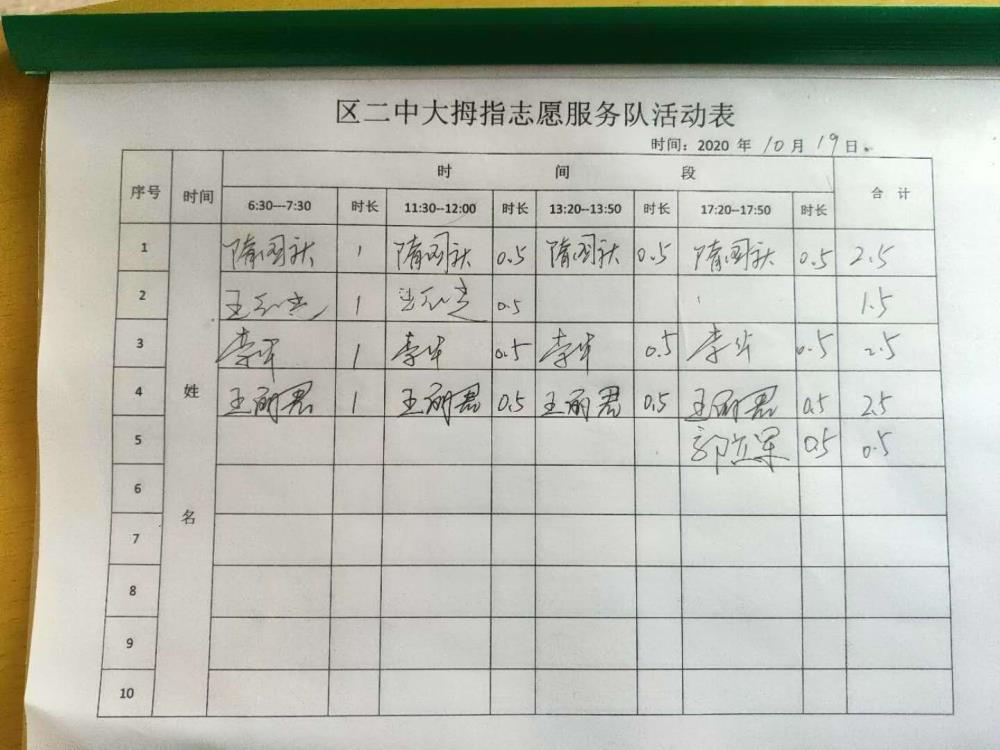 区二中大拇指志愿服务队活动表
时间：2020 年 10 月 19 日
序号 时间 时 间 段 合 计
6:30---7:30 时长 11:30--12:00 时长 13:20--13:50 时长 17:20--17:50 时长
姓 名
1 隋国秋 1 隋国秋 0.5 隋国秋 0.5 隋国秋 0.5 2.5
2 1 0.5 1.5
3 李华 1 李华 0.5 李华 0.5 李华 0.5 2.5
4 王丽君 1 王丽君 0.5 王丽君 0.5 王丽君 0.5 2.5
5 郭立军 0.5 0.5
6
7
8
9
10